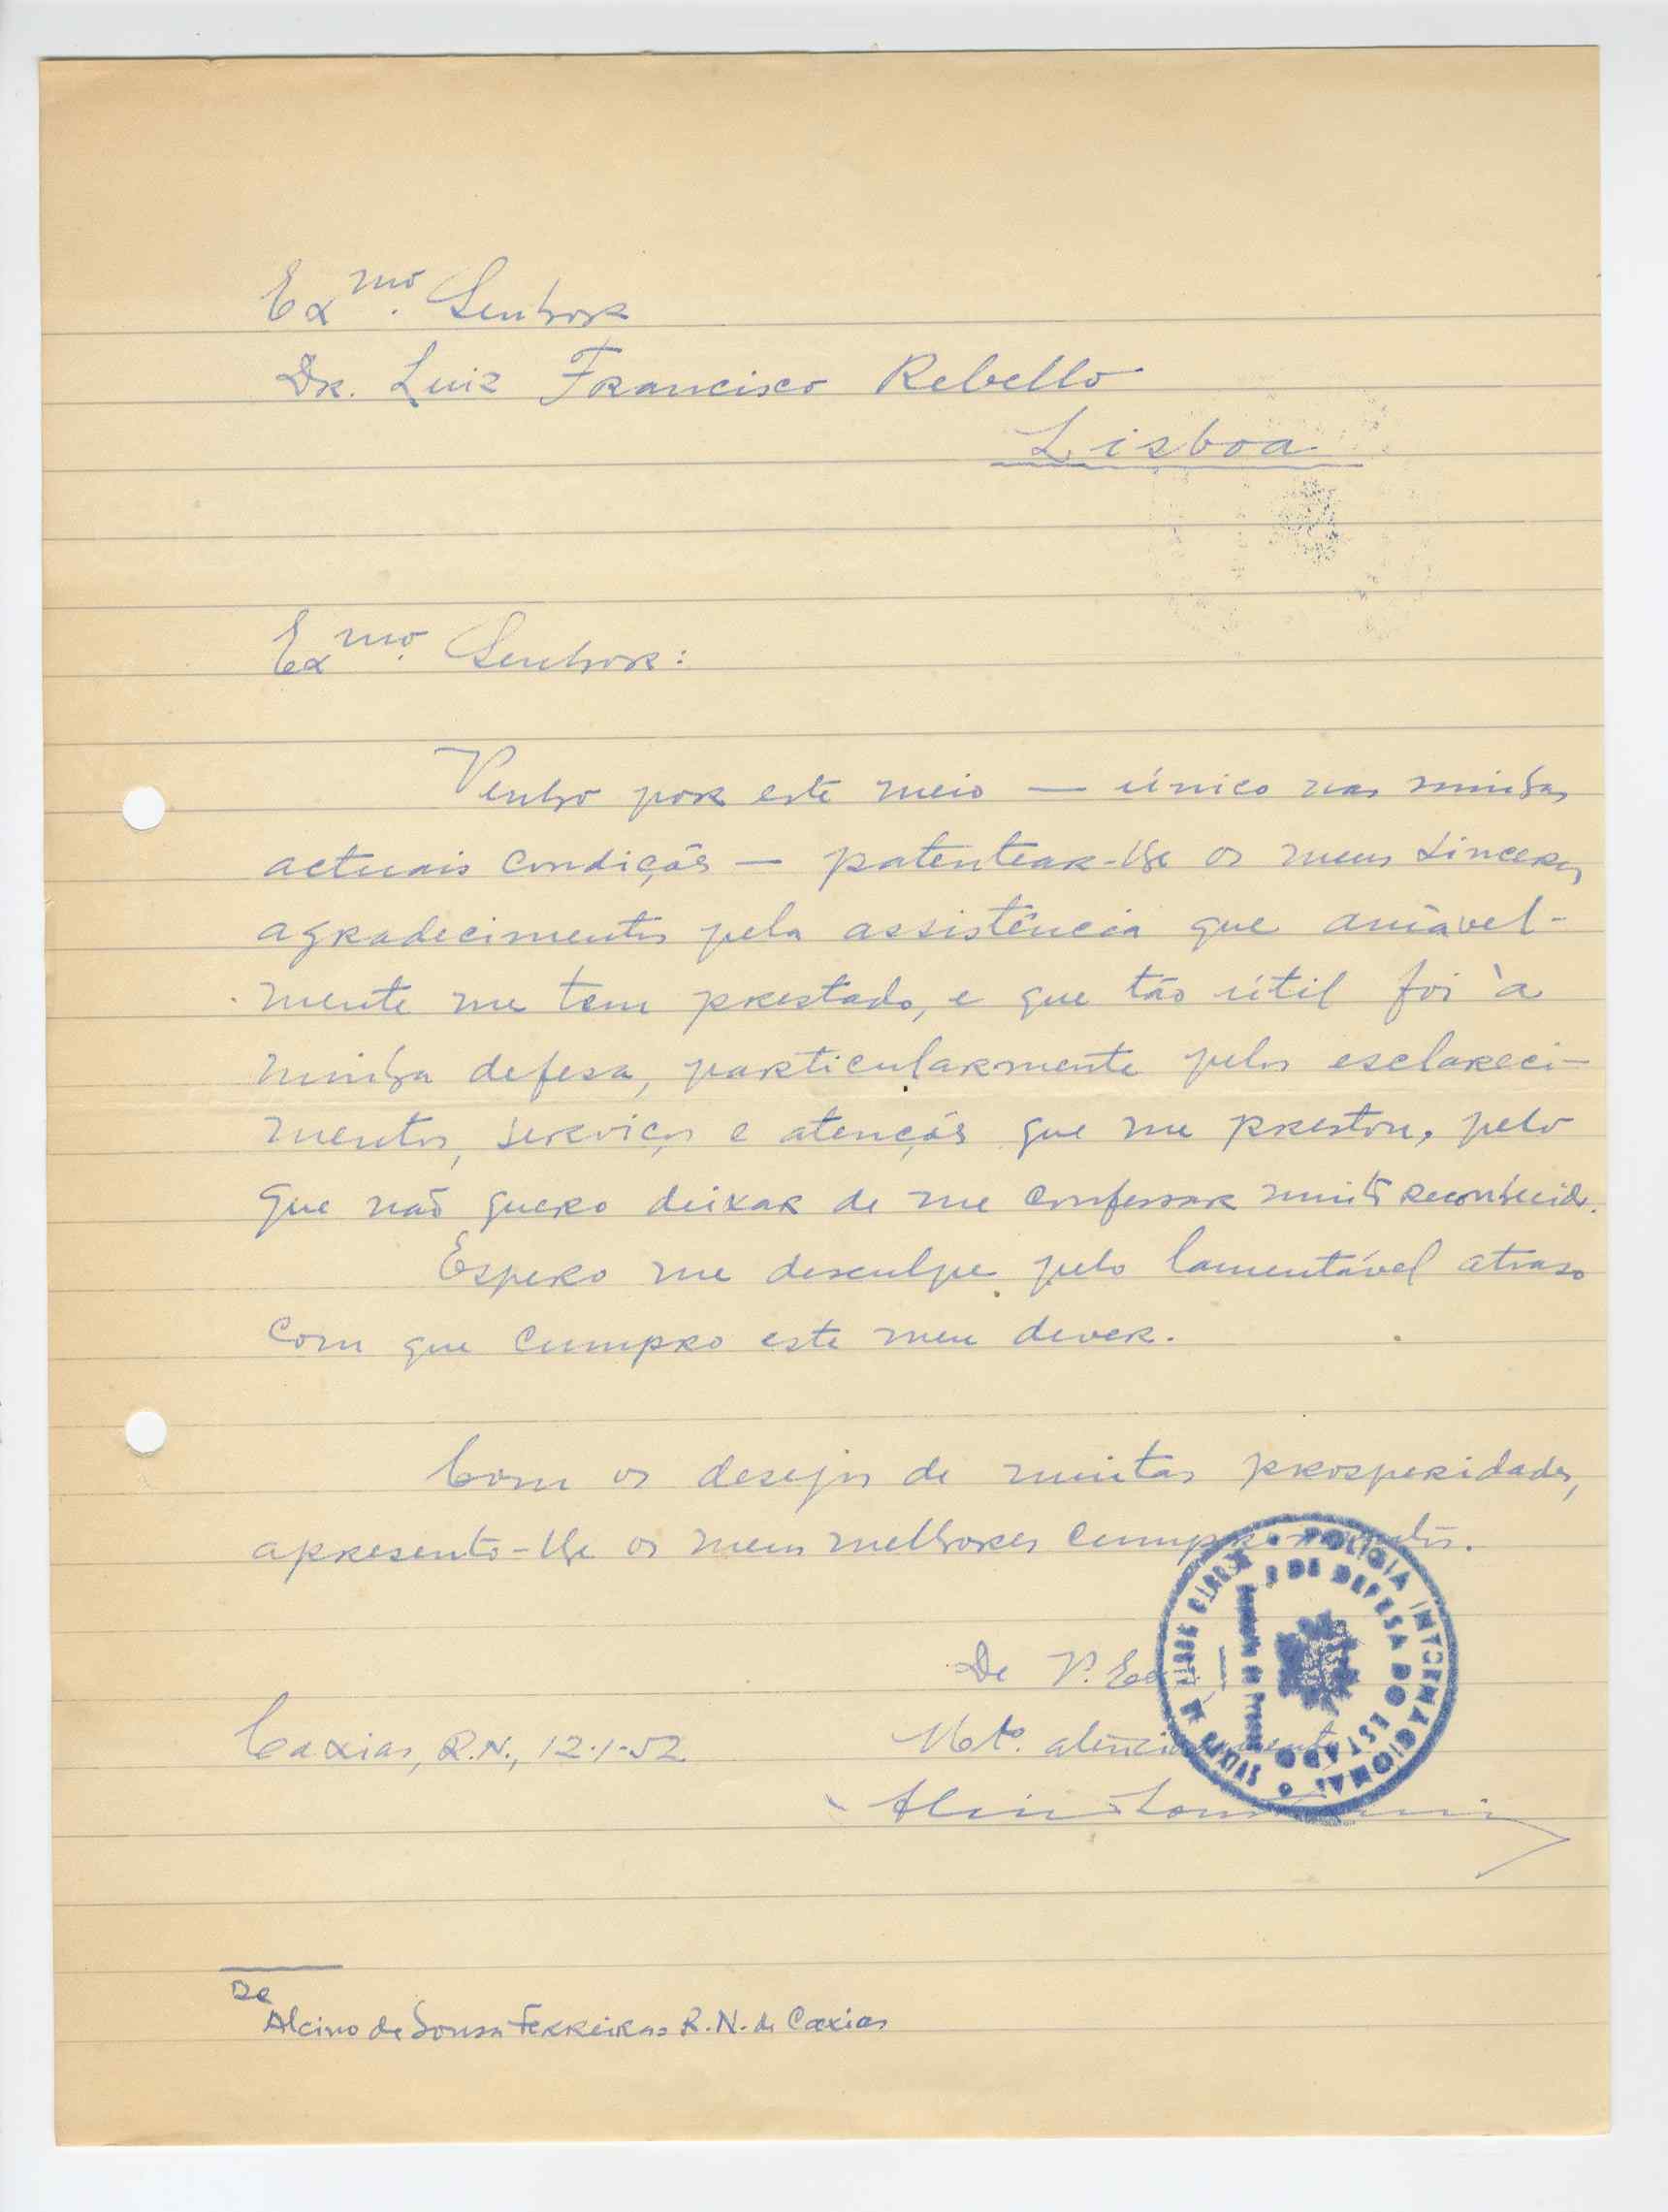 Exmo. Senhor
Dr. Luiz Francisco Rebello
Lisboa
Exmo. Senhor:
Venho por este meio — único nas minhas
actuais condições — patentear-lhe os meus sinceros
agradecimentos pela assistência que amável-
mente me tem prestado, e que tão útil foi à
minha defesa, particularmente pelos esclareci-
mentos, serviços e atenções que me prestou, pelo
que não quero deixar de me confessar muito reconhecido.
Espero me desculpe pelo lamentável atraso
com que cumpro este meu dever.
Com os desejos de muitas prosperidades,
apresento-lhe os meus melhores cumprimentos.
De V. Exa.
Caxias, R.N., 12-1-52
Mto. atenciosamente
POLICIA INTERNACIONAL
E DE DEFESA DO ESTADO
De
Alcino de Sousa Ferreira R.N. de Caxias